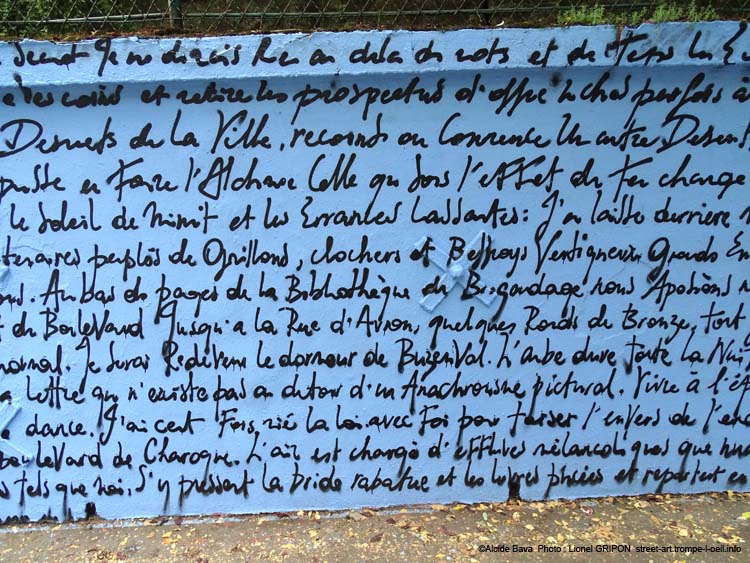 Secret Je ne dirais Rien au delà de mots et de
et retire les prospectus d'offre parfois
Deserts de la Ville, reconnts on Commence Un autre Desert
puisse en Faire l'Alchimie Celle qui sous l'effet du Feu change
le Soleil de Minuit et les Errances Lassantes: J'ai laissé derrière
peuplés de Grillons, clochers et Beffrois Vertigineux Grands
Au bas de pages de la Bibliothèque du Brigandage nous Apotions
du Boulevard Jusqu'a la Rue d'Avron, quelques Ronds de Bronze, tout
normal. Je serai Redevenu le dormeur de Buzenval. L'aube dure toute la Nuit
lettre qui n'existe pas au detour d'un Anachronisme pictural. Vivre à
dance. J'ai cent Fois, la Loi avec Foi pour l'envers de
boulevard de Charogne. L'air est chargé d'effluves mélancoliques que
tels que moi, S'y pressent la bride rabatue et les et repartent en
©Aloïde Bava Photo : Lionel GRIPON street-art.trompe-l-oeil.info